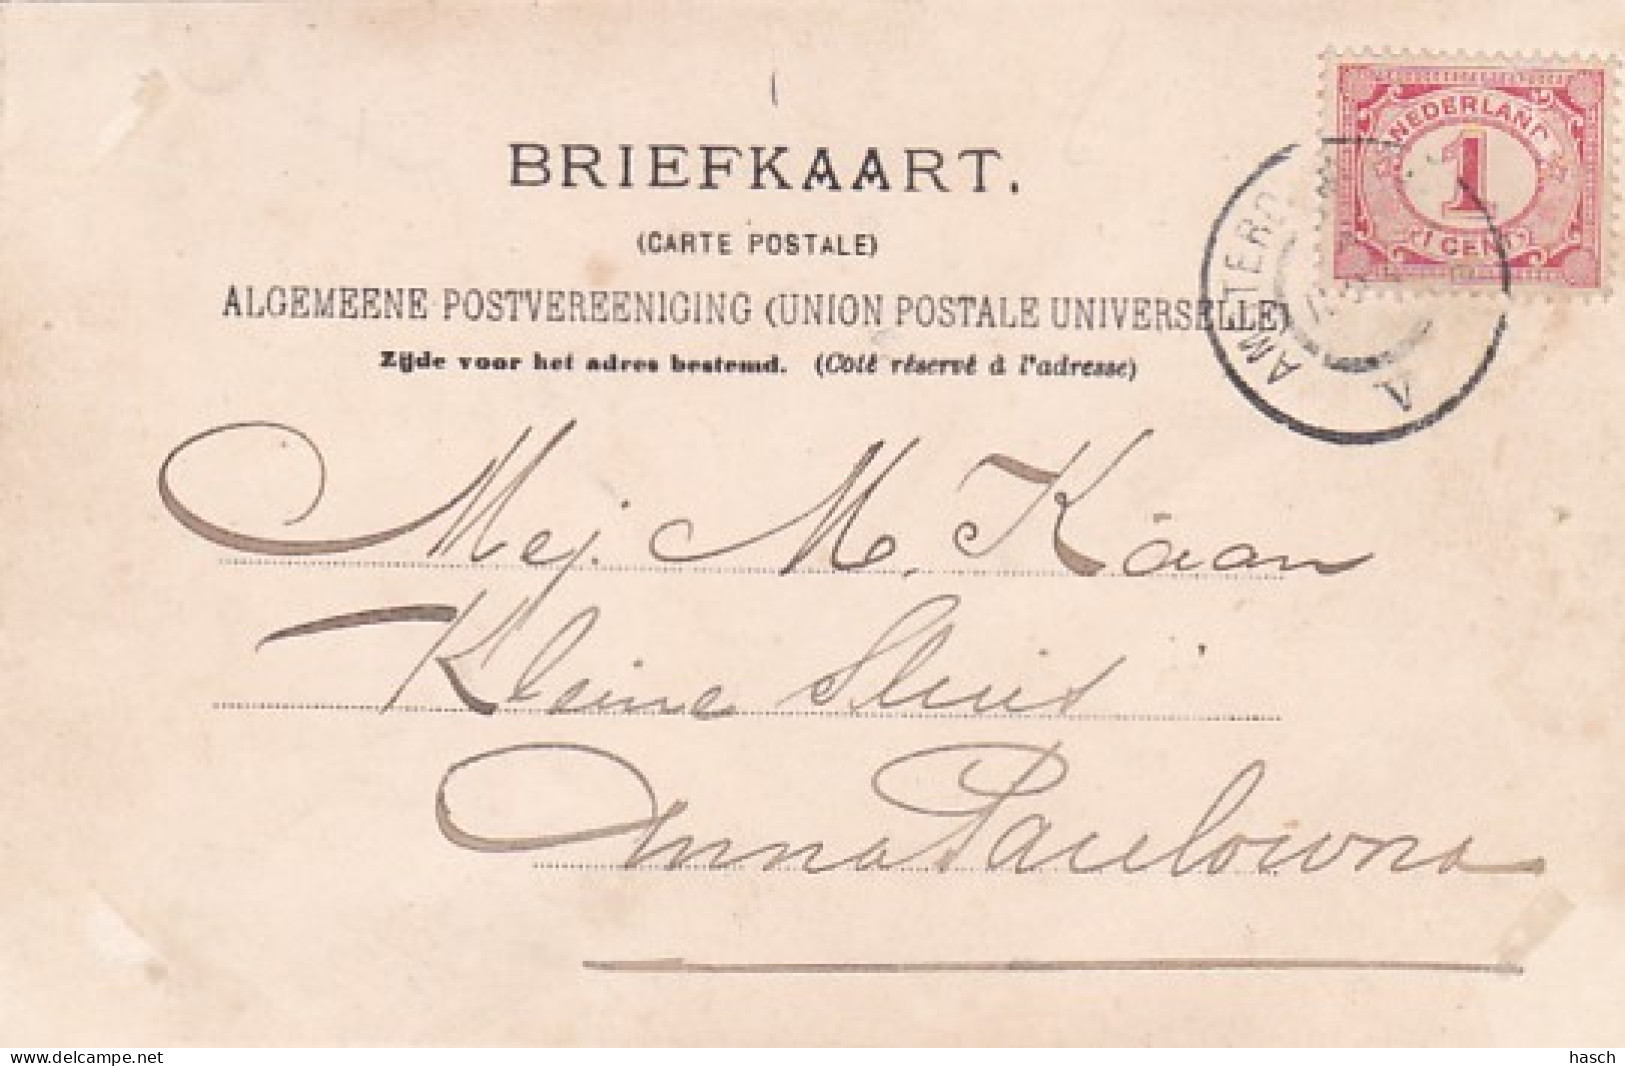 BRIEFKAART.
(CARTE POSTALE)
ALGEMEENE POSTVEREENIGING (UNION POSTALE UNIVERSELLE)
Zijde voor het adres bestemd. (Côté réservé à l'adresse)
NEDERLAND
1
1 CENT
AMSTERD
Mej. M. Käan
Kleine Sluis
Anna Paulowna
www.delcampe.net
hasch